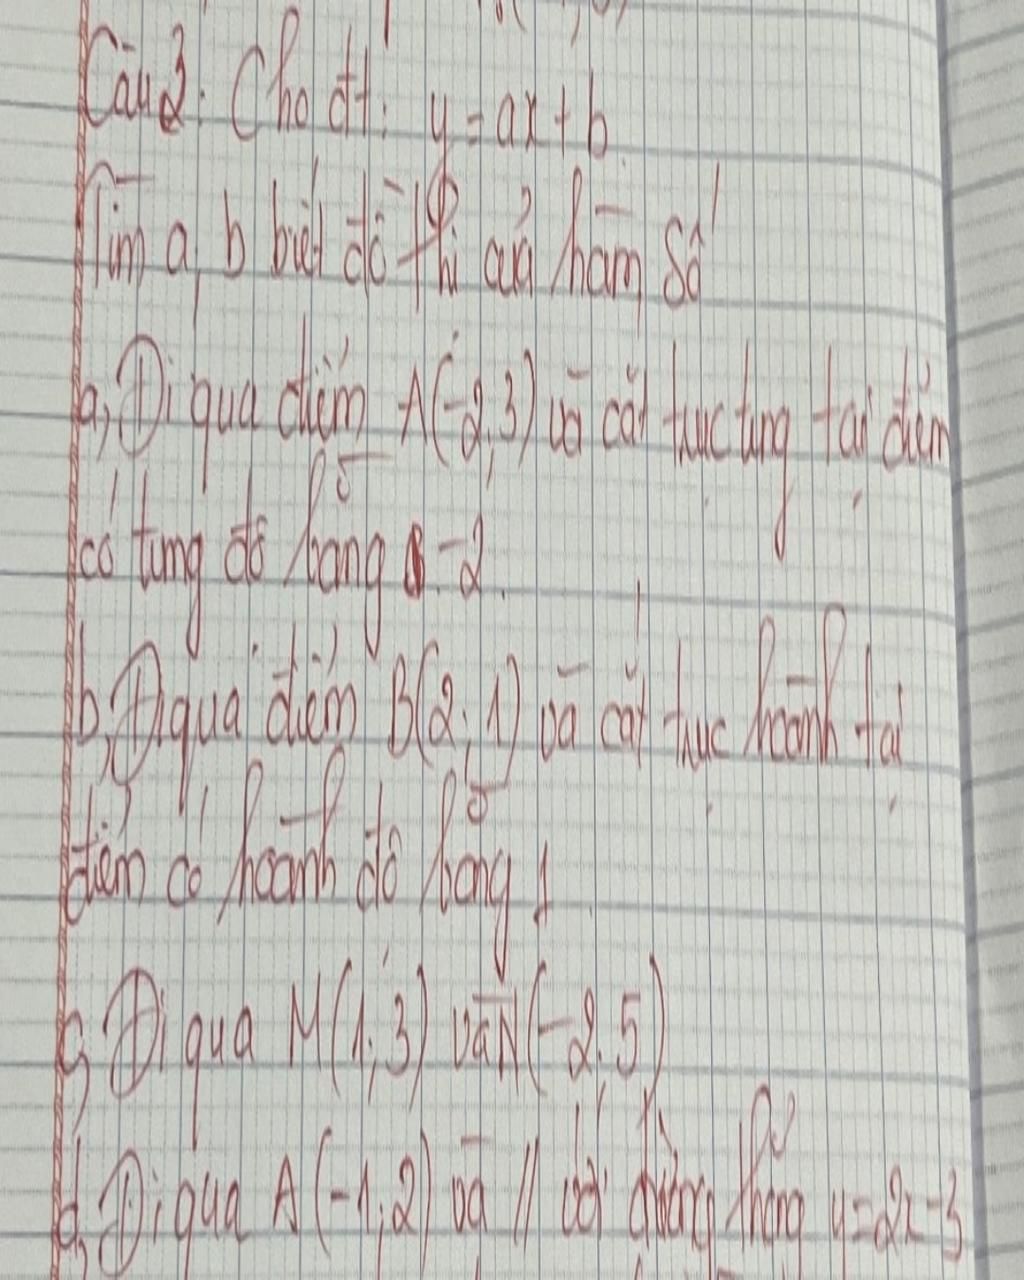 Câu 3: Cho đt: y = ax + b
Tìm a, b biết đồ thị của hàm số
a, Đi qua điểm A(-2; 3) và cắt trục tung tại điểm
có tung độ bằng -2.
b, Đi qua điểm B(2; 1) và cắt trục hoành tại
điểm có hoành độ bằng 1.
c, Đi qua M(1; 3) và N(-2; 5)
d, Đi qua A(-1; 2) và // với đường thẳng y = 2x - 3